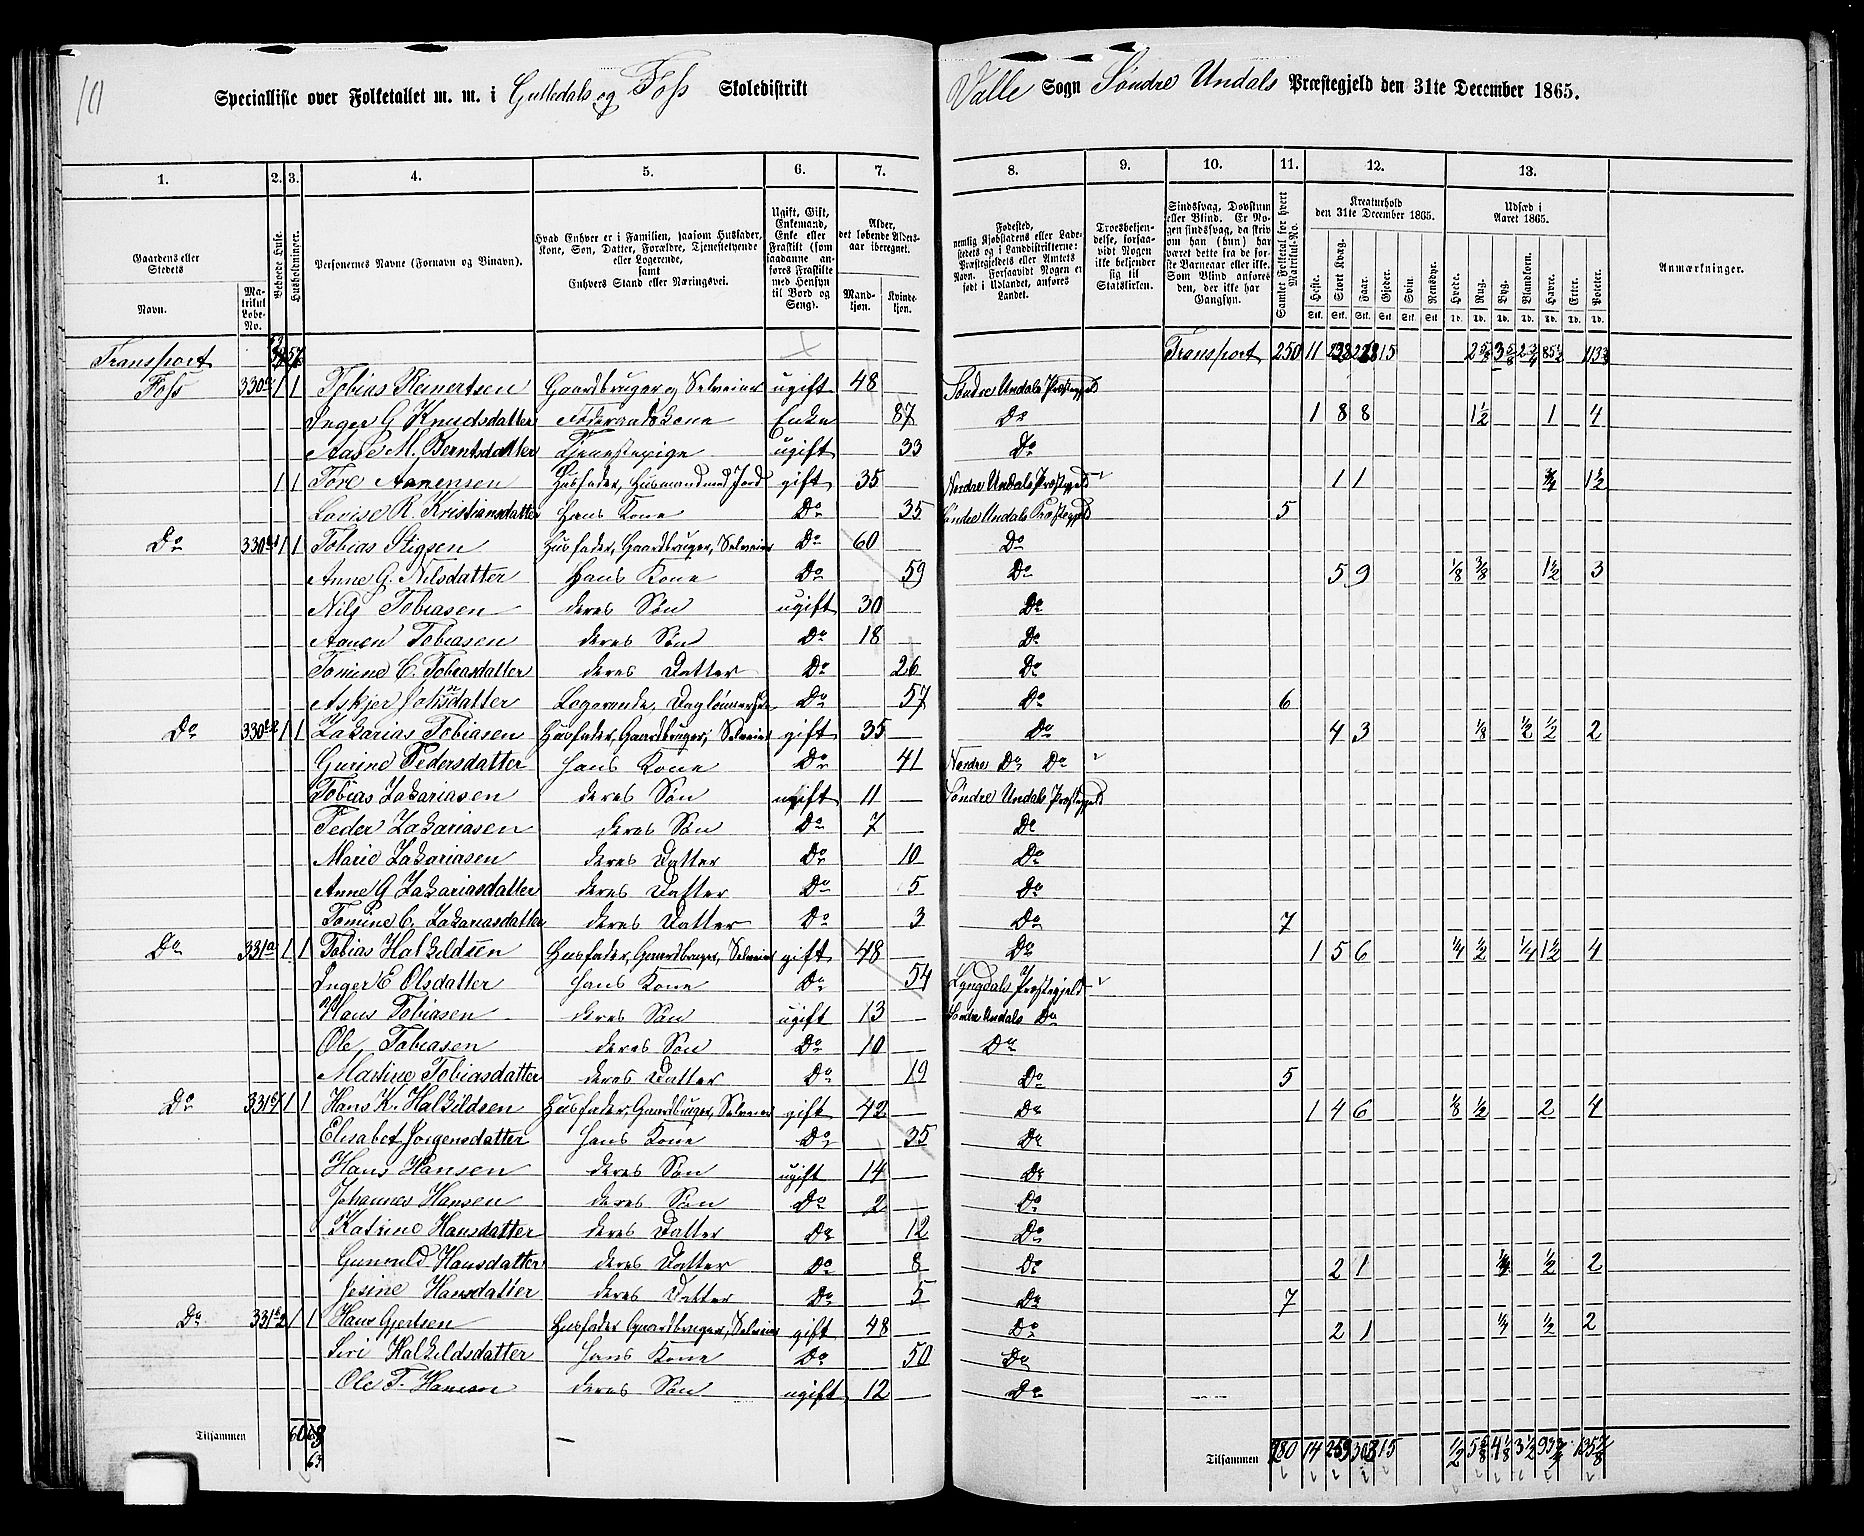 10
Specialliste over Folketallet m. m. i Gulledals og Foss Skoledistrikt
Valle Sogn Søndre Undals Præstegjeld den 31te December 1865.
1. 2. 3. 4. 5. 6. 7. 8. 9. 10. 11. 12. 13.
Gaardens eller Stedets Navn.
Matrikul Løbe-No.
Bebøede Huse.
Husholdninger.
Personernes Navne (Fornavn og Binavn).
Hvad Enhver er i Familien, saasom Husfader, Kone, Søn, Datter, Forældre, Tjenestetyende eller Logerende, samt Enhvers Stand eller Næringsvei.
Ugift, Gift, Enkemand, Enke eller Fraskilt (som saadanne anføres Fraskilte med Hensyn til Bord og Seng).
Alder, det løbende Alders-aar iberegnet.
Mandkjøn. Kvindekjøn.
Fødested, nemlig Kjøbstadens eller Ladestedets og i Landdistrikterne: Præstegjeldets eller Amtets Navn. Forsaavidt Nogen er født i Udlandet, anføres Landet.
Troesbekjendelse, forsaavidt Nogen ikke bekjender sig til Statskirken.
Sindssvag, Døvstum eller Blind. Er Nogen sindssvag, da skriv om han (hun) har været dette fra de første Barneaar eller ikke. Som Blind anføres den, der ikke har Gangsyn.
Samlet Folketal for hvert Matrikul-No.
Kreaturhold den 31te December 1865.
Heste. Stort Kvæg. Faar. Gjeder. Svin. Rensdyr.
Udsæd i Aaret 1865.
Hvede. Rug. Byg. Blandkorn. Havre. Erter. Poteter.
Anmærkninger.
Transport Transport 250 11 15
Foss 1 1 Tobias Reinertsen Gaardbruger og Selveier ugift 48 Søndre Undals Præstegjeld
Inger G Knudsdatter Føderaadskone Enke 87 Do 1 8 8 1½ 1 4
Aase M. Berntsdatter Tjenestepige ugift 33 Do
1 1 Tore Aanensen Husfader, Husmand med Jord gift 35 Nordre Undals Præstegjeld 1 1 1½
Lovise R. Kristiansdatter Hans Kone Do 35 Søndre Undals Præstegjeld 5
Do 1 1 Tobias Stigsen Husfader, Gaardbruger, Selveier Do 60 Do
Anne G. Nilsdatter Hans Kone Do 59 Do 5 9 ⅛ ⅜ 1½ 3
Nils Tobiasen deres Søn ugift 30 Do
Aanen Tobiasen deres Søn Do 18 Do
Tomine C. Tobiasdatter deres Datter Do 26 Do
Askjer Johnsdatter Logerende, Do 57 Do 6
Do 1 1 Zakarias Tobiasen Husfader, Gaardbruger, Selveier gift 35 Do 4 3 ⅛ ½ ½ 2
Gurine Pedersdatter Hans Kone Do 41 Nordre Do Do
Tobias Zakariasen deres Søn ugift 11 Søndre Undals Præstegjeld
Peder Zakariasen deres Søn Do 7 Do
Marie Zakariasen deres Datter Do 10 Do
Anne G Zakariasdatter deres Datter Do 5 Do
Tomine C. Zakariasdatter deres Datter Do 3 Do 7
Do 331a 1 1 Tobias Halkildsen Husfader, Gaardbruger, Selveier gift 48 Do 1 5 6 ¼ ½ ¼ 1½ 4
Inger E Olsdatter Hans Kone Do 54 Lyngdals Præstegjeld
Hans Tobiasen deres Søn ugift 13 Søndre Undals Do
Ole Tobiasen deres Søn Do 10 Do
Martine Tobiasdatter deres Datter Do 19 Do 5
Do 1 1 Hans K. Halkildsen Husfader, Gaardbruger, Selveier gift 42 Do 1 4 6 ⅛ ½ 2 4
Elisabet Jørgensdatter Hans Kone Do 35 Do
Hans Hansen deres Søn ugift 14 Do
Johannes Hansen deres Søn Do 2 Do
Katrine Hansdatter deres Datter Do 12 Do
Gunvald Hansdatter deres Datter Do 8 Do 2 1 ½ 2
Jesine Hansdatter deres Datter Do 5 Do 7
Do 331b2 1 1 Hans Gjertsen Husfader Gaardbruger, Selveier gift 48 Do 2 1 ½ 2
Siri Halkildsdatter Hans Kone Do 50 Do
Ole T. Hansen deres Søn ugift 12 Do
Tilsammen 60
63
Tilsammen 280 14 259 303 15 ½ 5⅝ 4⅛ 3½